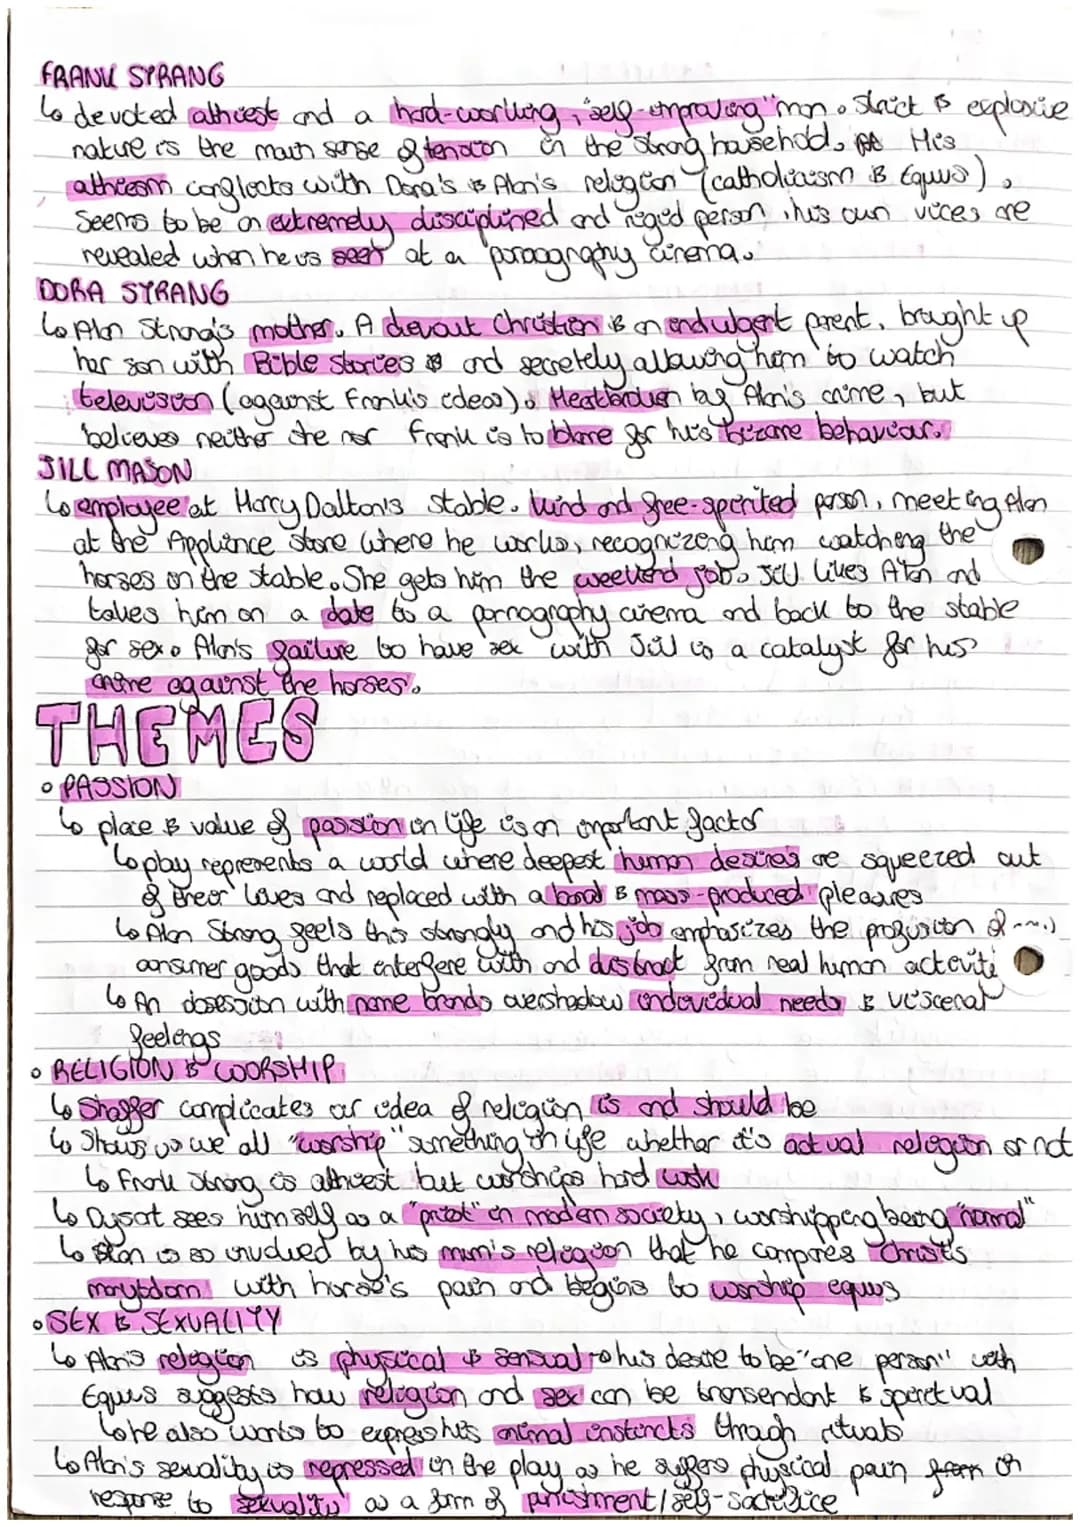 FRANK STRANG
↳ devoted athiest and a hard-working, "self-improving" man. Strict & explosive
nature is the main sense of tension in the Strang household. His
athiesm conflicts with Dora's & Alan's religion (catholicism & Equus).
Seems to be an extremely disciplined and rigid person, his own vices are
revealed when he is seen at a pornography cinema.
DORA STRANG
↳ Alan Strang's mother. A devout Christian & an indulgent parent, brought up
her son with Bible stories and secretely allowing him to watch
television (against Frank's ideas). Heartbroken by Alan's crime, but
believes neither she nor Frank is to blame for his bizarre behaviour.
JILL MASON
↳ employee at Harry Dalton's stable. Kind and free-spirited person, meeting Alan
at the Appliance store where he works, recognizing him watching the
horses in the stable. She gets him the weekend job. Jill likes Alan and
takes him on a date to a pornography cinema and back to the stable
for sex. Alan's failure to have sex with Jill is a catalyst for his
crime against the horses.
THEMES
• PASSION
↳ place & value of passion in life is an important factor
↳ play represents a world where deepest human desires are squeezed out
of their lives and replaced with a banal & mass-produced pleasures
↳ Alan Strang feels this strongly and his job emphasizes the profusion of
consumer goods that interfere with and distract from real human activiti
↳ An obsession with name brands overshadow individual needs & visceral
feelings
• RELIGION & WORSHIP
↳ Shaffer complicates our idea of religion is and should be
↳ Shows us we all "worship" something in life whether it's actual religion or not
↳ Frank Strang is athiest but worships hard work
↳ Dysart sees himself as a "priest" in modern society, worshipping being "normal"
↳ Alan is so involved by his mum's religion that he compares Christ's
marytdom with horse's pain and begins to worship equus
• SEX & SEXUALITY
↳ Alan's religion is physical & sensual → his desire to be "one person" with
Equus suggests how religion and sex can be transendant & spiritual
↳ he also wants to express his animal instincts through rituals
↳ Alan's sexuality is repressed in the play as he suffers physical pain from in
response to sexuality as a form of punishment/self-sacrifice